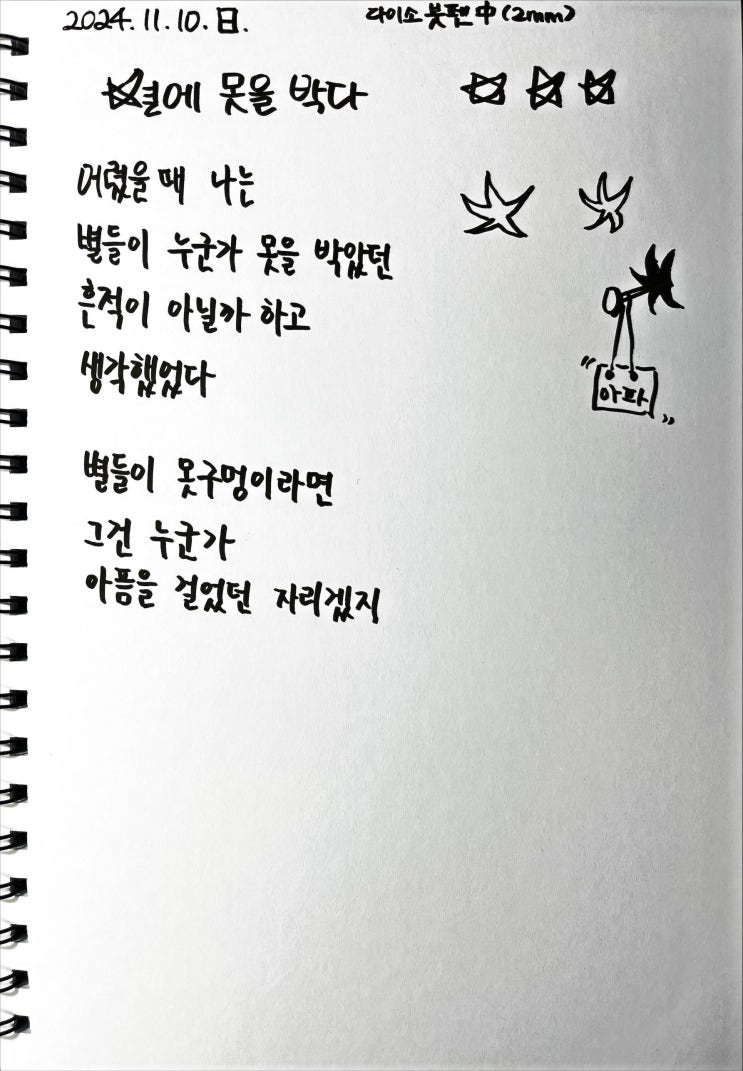 2024.11.10.日.
다이소 붓펜 中(2mm)
별에 못을 박다
어렸을때 나는
별들이 누군가 못을 박았던
흔적이 아닐까 하고
생각했었다
아파
별들이 못구멍이라면
그건 누군가
아픔을 걸었던 자리겠지